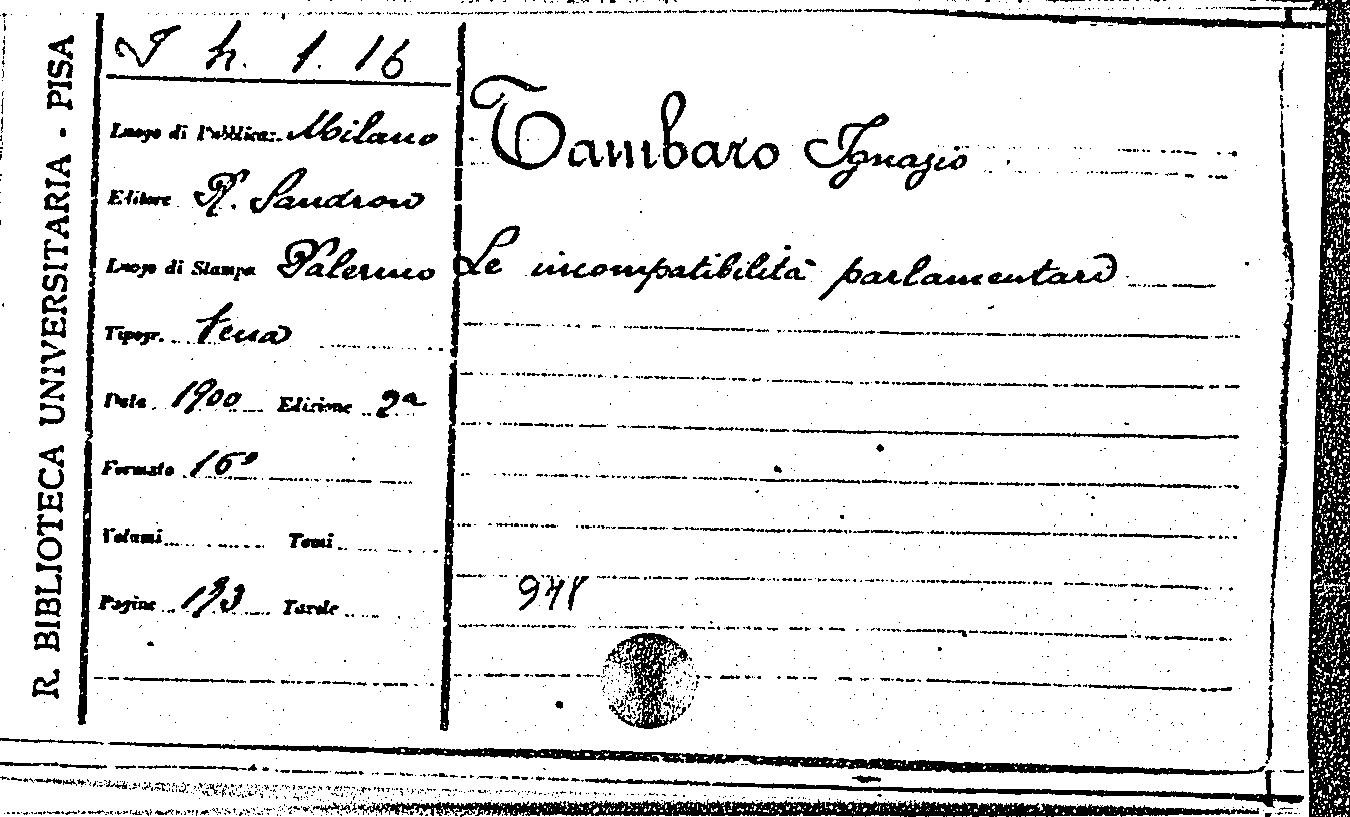 R. BIBLIOTECA UNIVERSITARIA - PISA
I h. 1. 16
Luogo di Pubblicaz. Milano
Editore R. Sandron
Luogo di Stampa Palermo
Tipogr.
Data 1900 Edizione 2ª
Formato 16º
Volumi Tomi
Pagine 193 Tavole
Tambaro Ignazio
Le incompatibilità parlamentari